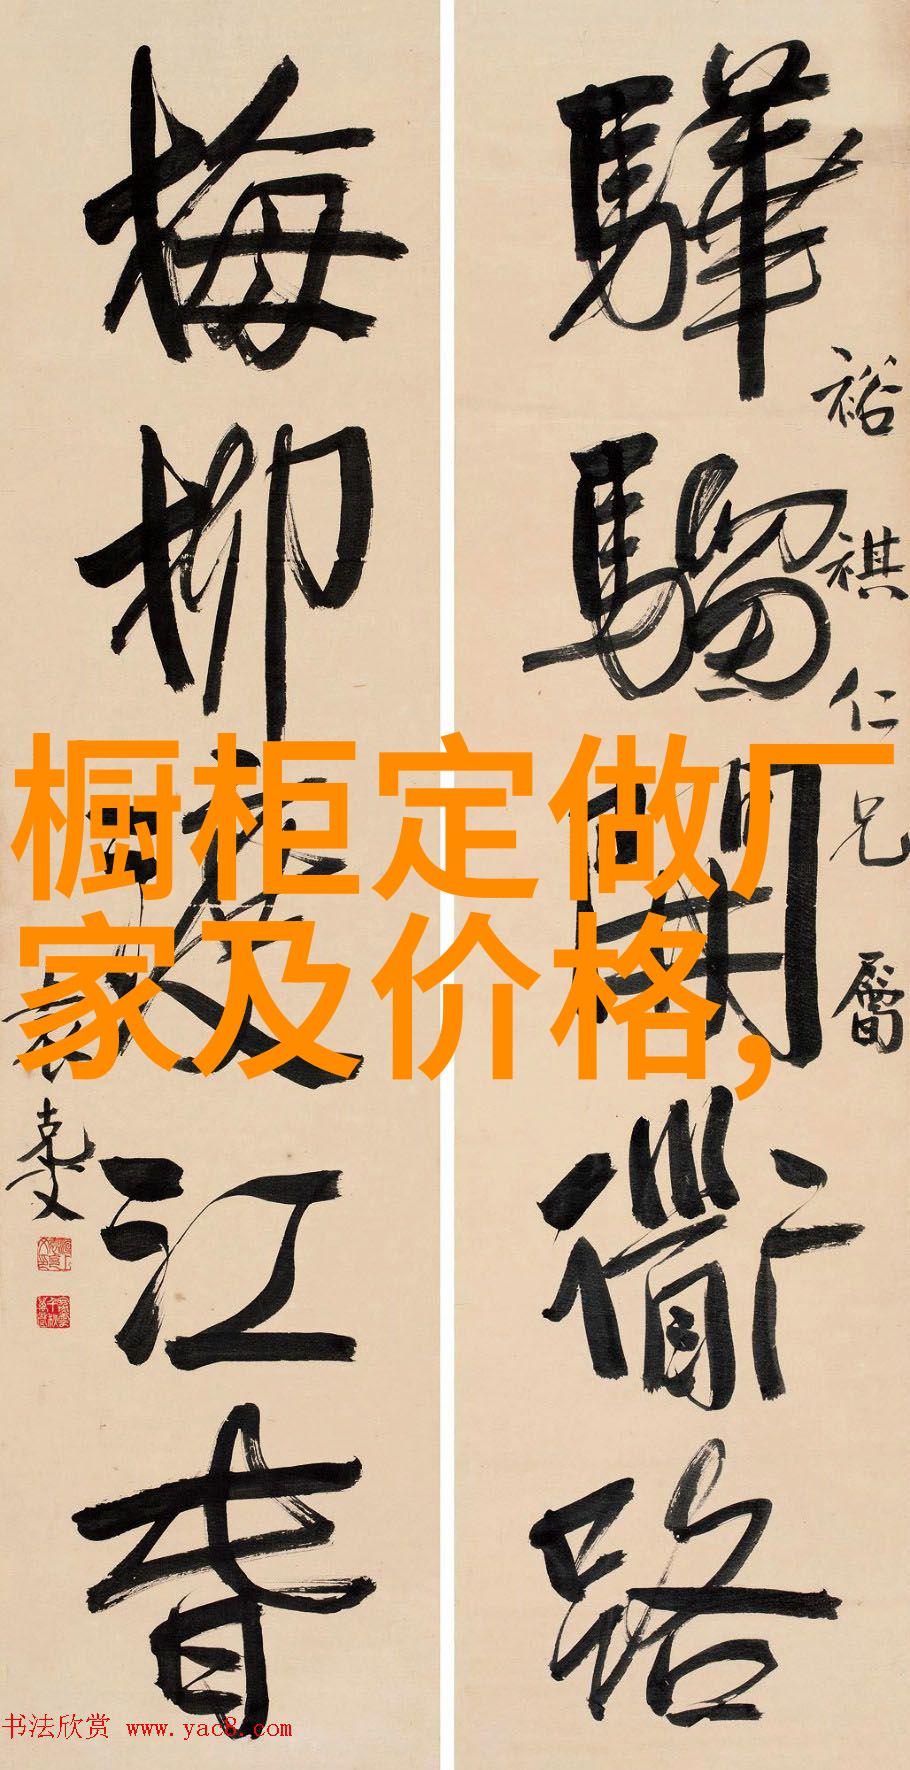 裕祺仁兄屬
驊騮開衜路
梅柳度江春
克文
橱柜定做厂
家及价格,
书法欣赏 www.yac8.com